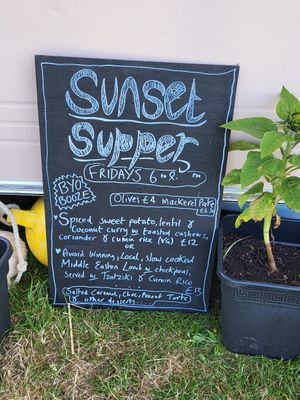 Sunset
Supper
FRIDAYS 6 to 8 PM
BYO'
BOOZE
Olives £4 Mackerel Pate
£6.50
Spiced sweet potato, lentil &
Coconut curry w toasted cashews,
Coriander & cumin rice (VG) £12
OR
Award Winning, Local, slow cooked
Middle Eastern Lamb w chickpeas,
Served w Tzatziki & Cumin Rice
£13
Salted Caramel, Choc, Peanut Torte
& other desserts....